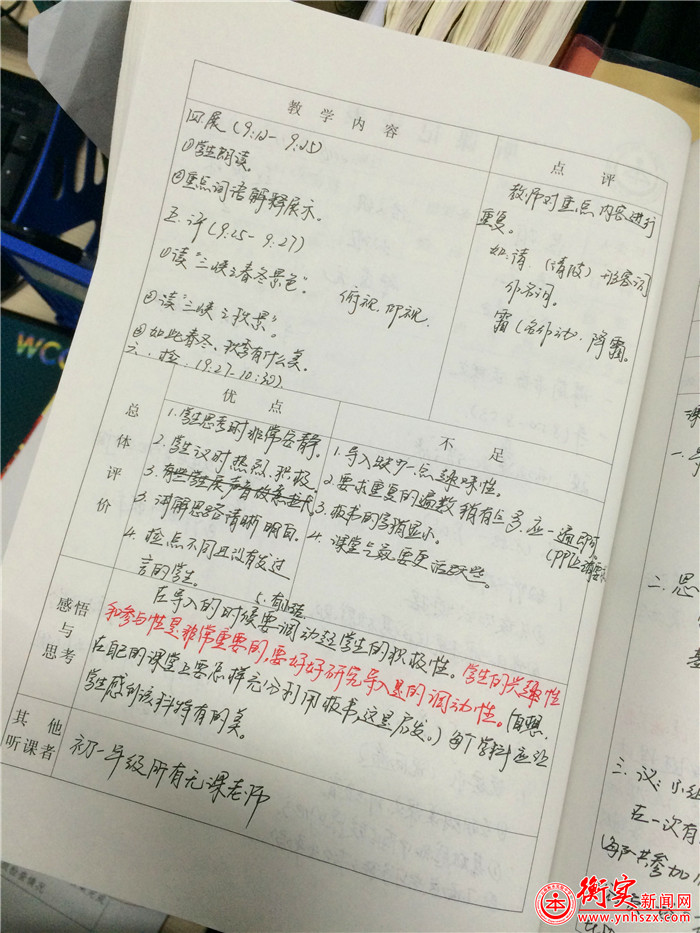 教学内容
点评
四.展(9:12-9:25)
①学生朗读。
②重点词语解释展示。
五.评(9:25-9:27)
①读"三峡之春冬景色"。
俯视,仰视.
②读"三峡之秋景"。
③如此春冬、秋季有什么美。
六.检.(9:27-10:30)
教师对重点内容进行
重复。
如:清(清波)形容词
作名词。
霜(名作动).降霜。
总体评价
优点
1.学生思考时非常安静。
2.学生议时热烈.积极。
3.讲解思路清晰明目.
4.检点不同且没有发过
言的学生。
不足
1.导入缺少一点趣味性。
2.要求重复的遍数稍有些多.应一遍即可。
3.板书的字稍显小。
4.课堂气氛要更活跃些。
感悟
与
思考
在导入的时候要调动起学生的积极性。学生的兴趣性
和参与性是非常重要的,要好好研究导入是的调动性。(自想:
在自己的课堂上要怎样充分利用板书,这是启发。)每个学科应让
学生感到该科特有的美。
其他
听课者
初一年级所有无课老师
WCO
二.思
三.议:小组
在一次有
衡实新闻网
www.ynhszx.com